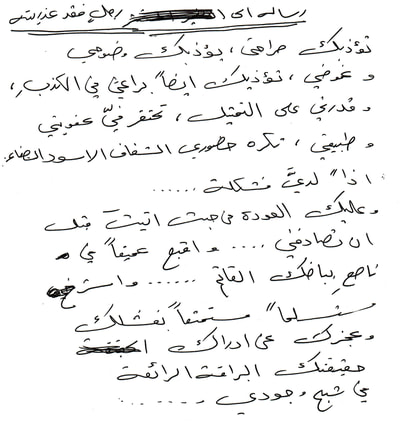 رسالة الى رجل فقد عذريته
تؤذيك صراحتي، يؤذيك وضوحي
و غموضي، تؤذيك ايضاً براعتي في الكذب،
و قدرتي على التمثيل، تحتقر فيّ عفويتي
و طبيعتي، تكره حضوري الشفاف الاسود المضاء.
اذاً لديَّ مشكلة ......
و عليك العودة من حيث اتيتَ قبل
ان تصادفني .... و اقبع عميقاً في
ناصع بياضك القاتم ...... و استرخِ
مستسلماً مستمتعاً بفشلك
و عجزك عن ادراك
حقيقتك البراقة الرائعة
في شبح وجودي ........